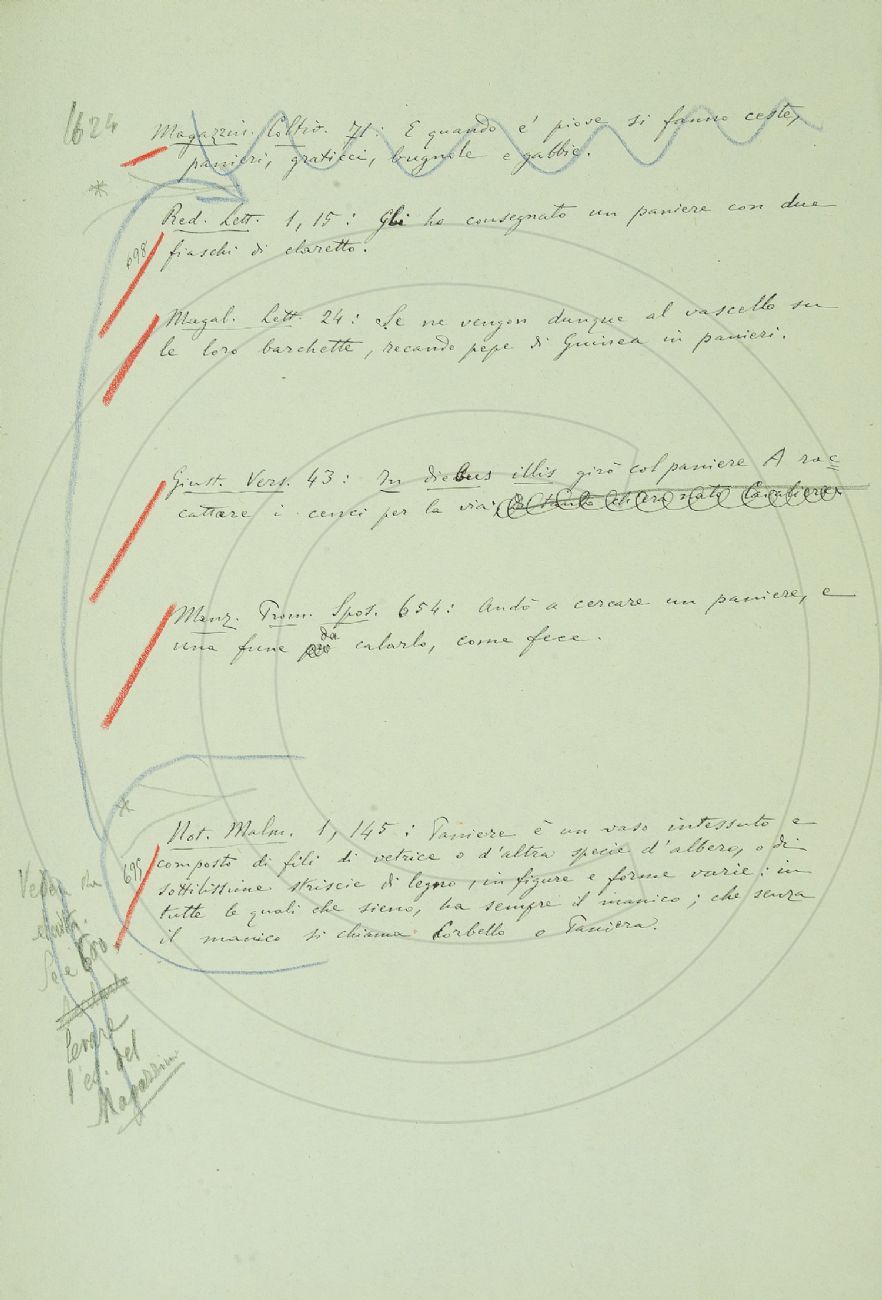 1624
Magazzin. Coltiv. 71: E quando e' piove si fanno ceste,
panieri, graticci, bugnole e gabbie.
*
Red. Lett. 1, 15: Gli ho consegnato un paniere con due
698
fiaschi di claretto.
Magal. Lett. 24: Se ne vengon dunque al vascello su
le loro barchette, recando pepe di Guinea in panieri.
Giust. Vers. 43: In diebus illis girò col paniere A rac=
cattare i cenci per la via;
Manz. Prom. Spos. 654: Andò a cercare un paniere, e
una fune da calarlo, come fece.
*
Not. Malm. 1, 145: Paniere è un vaso intessuto e
699
composto di fili di vetrice o d'altra specie d'albero, o di
sottilissime striscie di legno, in figure e forme varie: in
tutte le quali che sieno, ha sempre il manico; che senza
il manico si chiama Corbello o Paniera.
Se è
levare
l'es. del
Magazzini